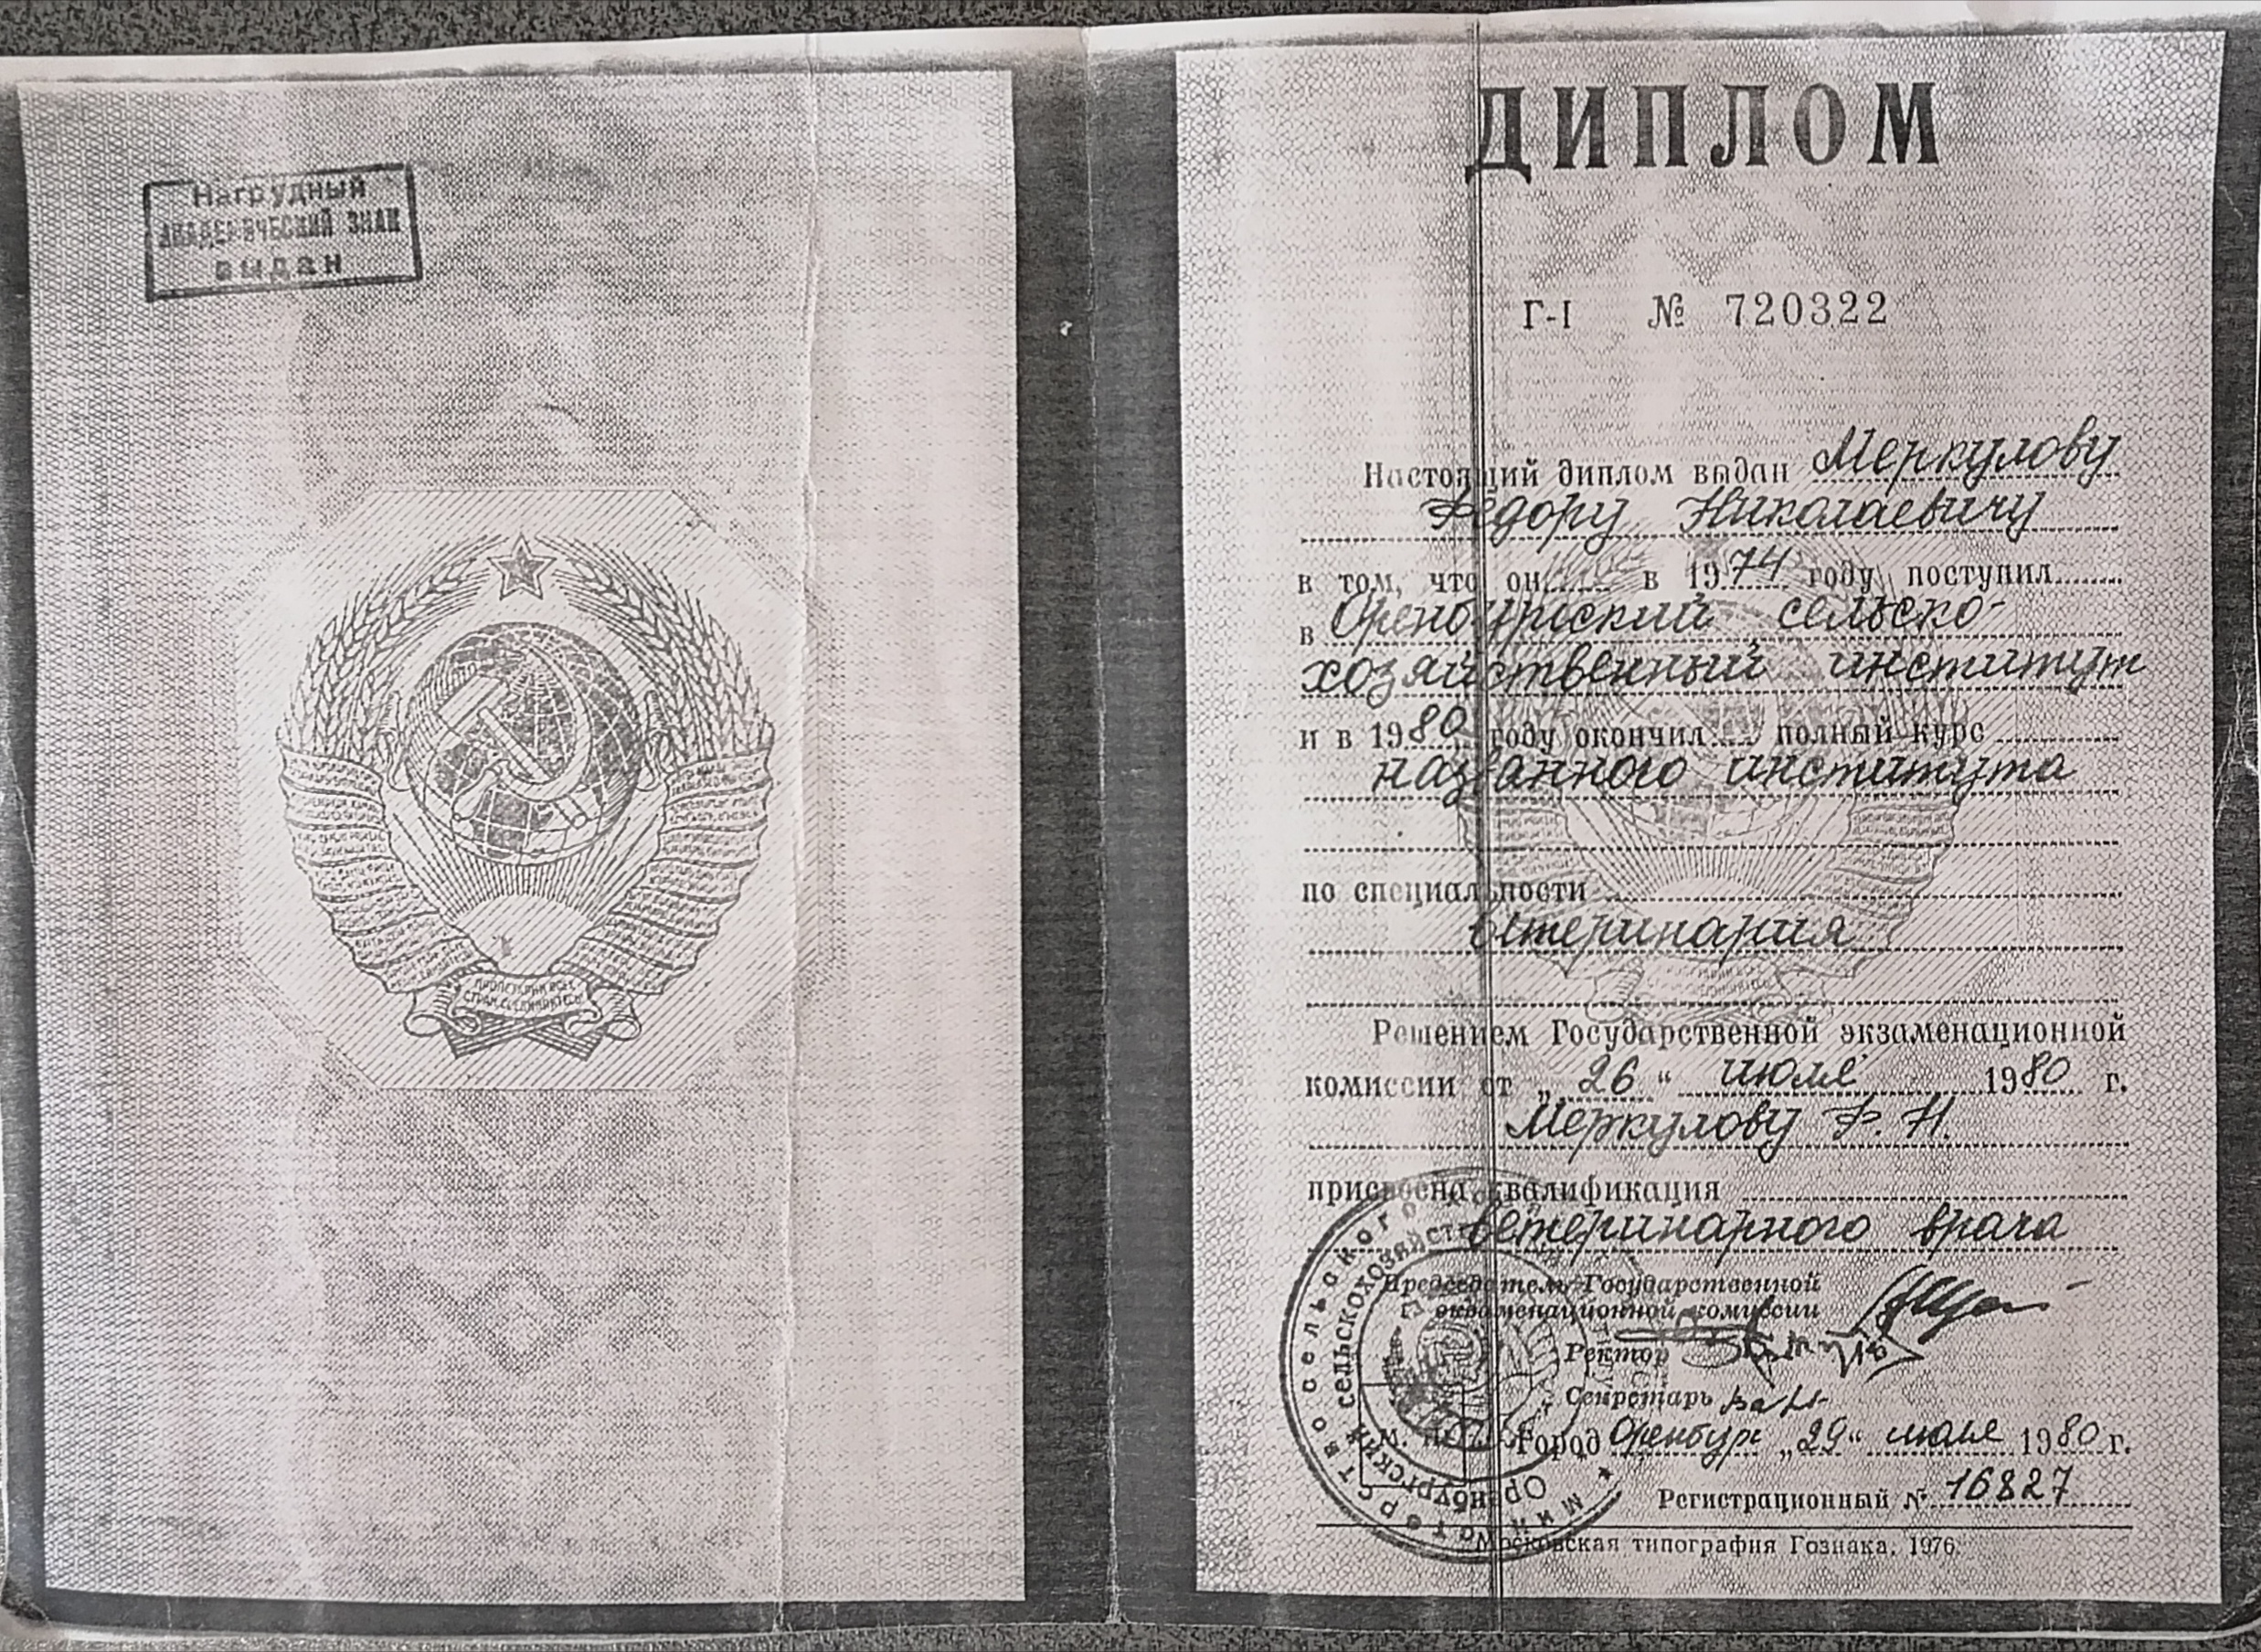 Нагрудный
АКАДЕМИЧЕСКИЙ ЗНАК
выдан
ПРОЛЕТАРИИ ВСЕХ
СТРАН, СОЕДИНЯЙТЕСЬ!
ДИПЛОМ
Г-I № 720322
Настоящий диплом выдан Меркулову
Фёдору Николаевичу
в том, что он в 1974 году поступил
в Оренбургский сельско-
хозяйственный институт
и в 1980 году окончил полный курс
названного института
по специальности
ветеринария
Решением Государственной экзаменационной
комиссии от „26“ июля 1980 г.
Меркулову Ф. Н.
присвоена квалификация
ветеринарного врача
Председатель Государственной
экзаменационной комиссии
Ректор
Секретарь
М. П. Город Оренбург „29“ июля 1980 г.
Регистрационный № 16827
Московская типография Гознака, 1976.
Министерство сельского
Оренбургский сельскохозяйст